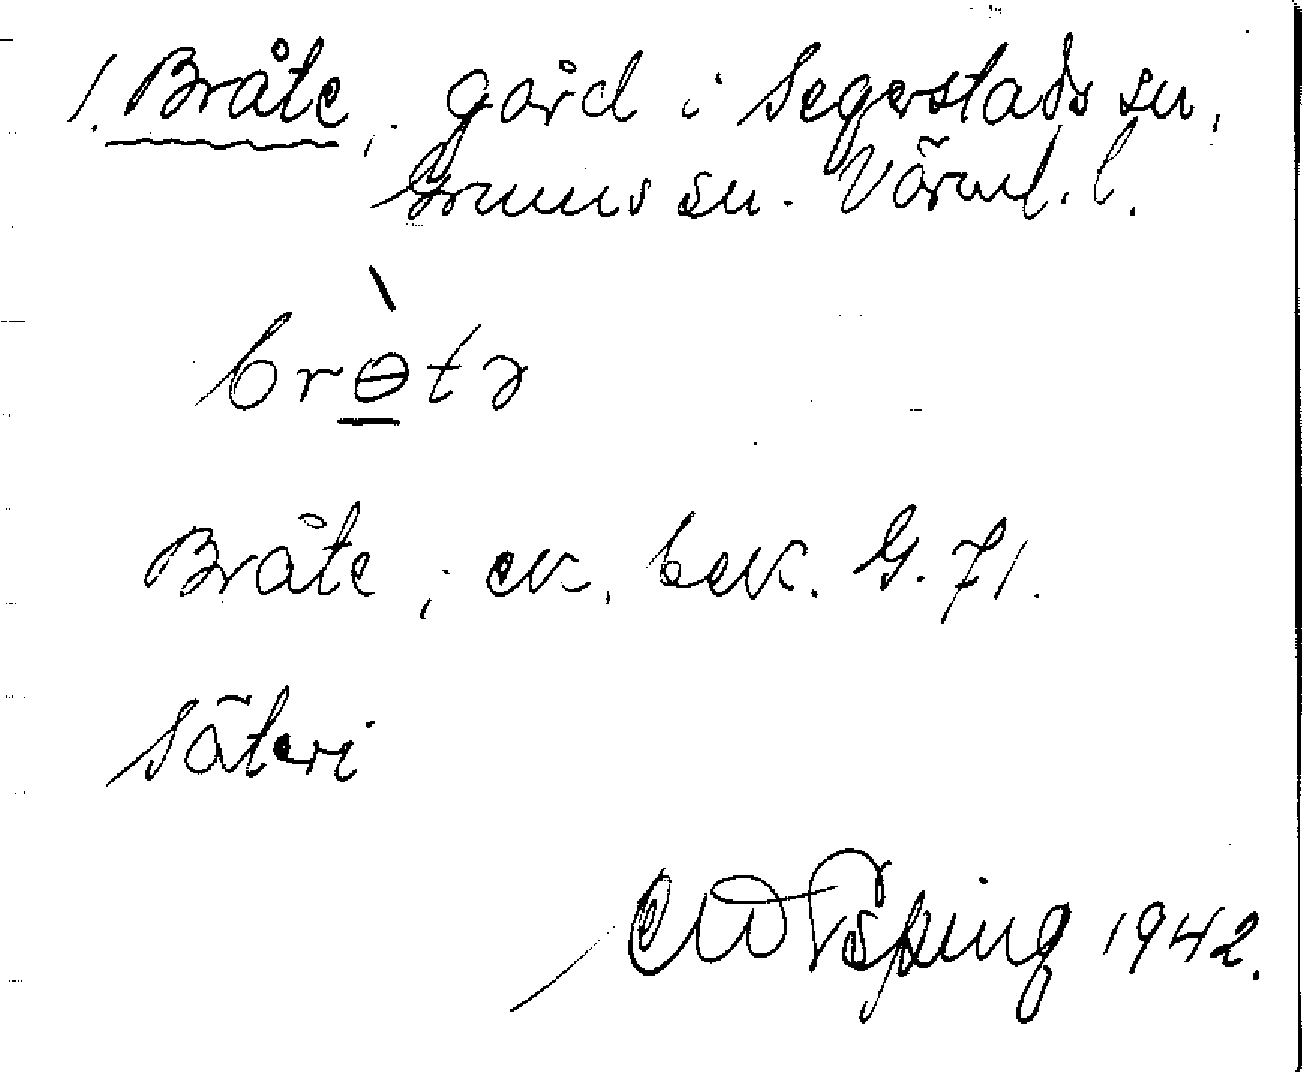 1. Bråte, gård i Segerstads sn,
Grums sn. Värml. l.
brɵ̀tə
Bråte, ek. bek. G. 71.
Säteri
1942.